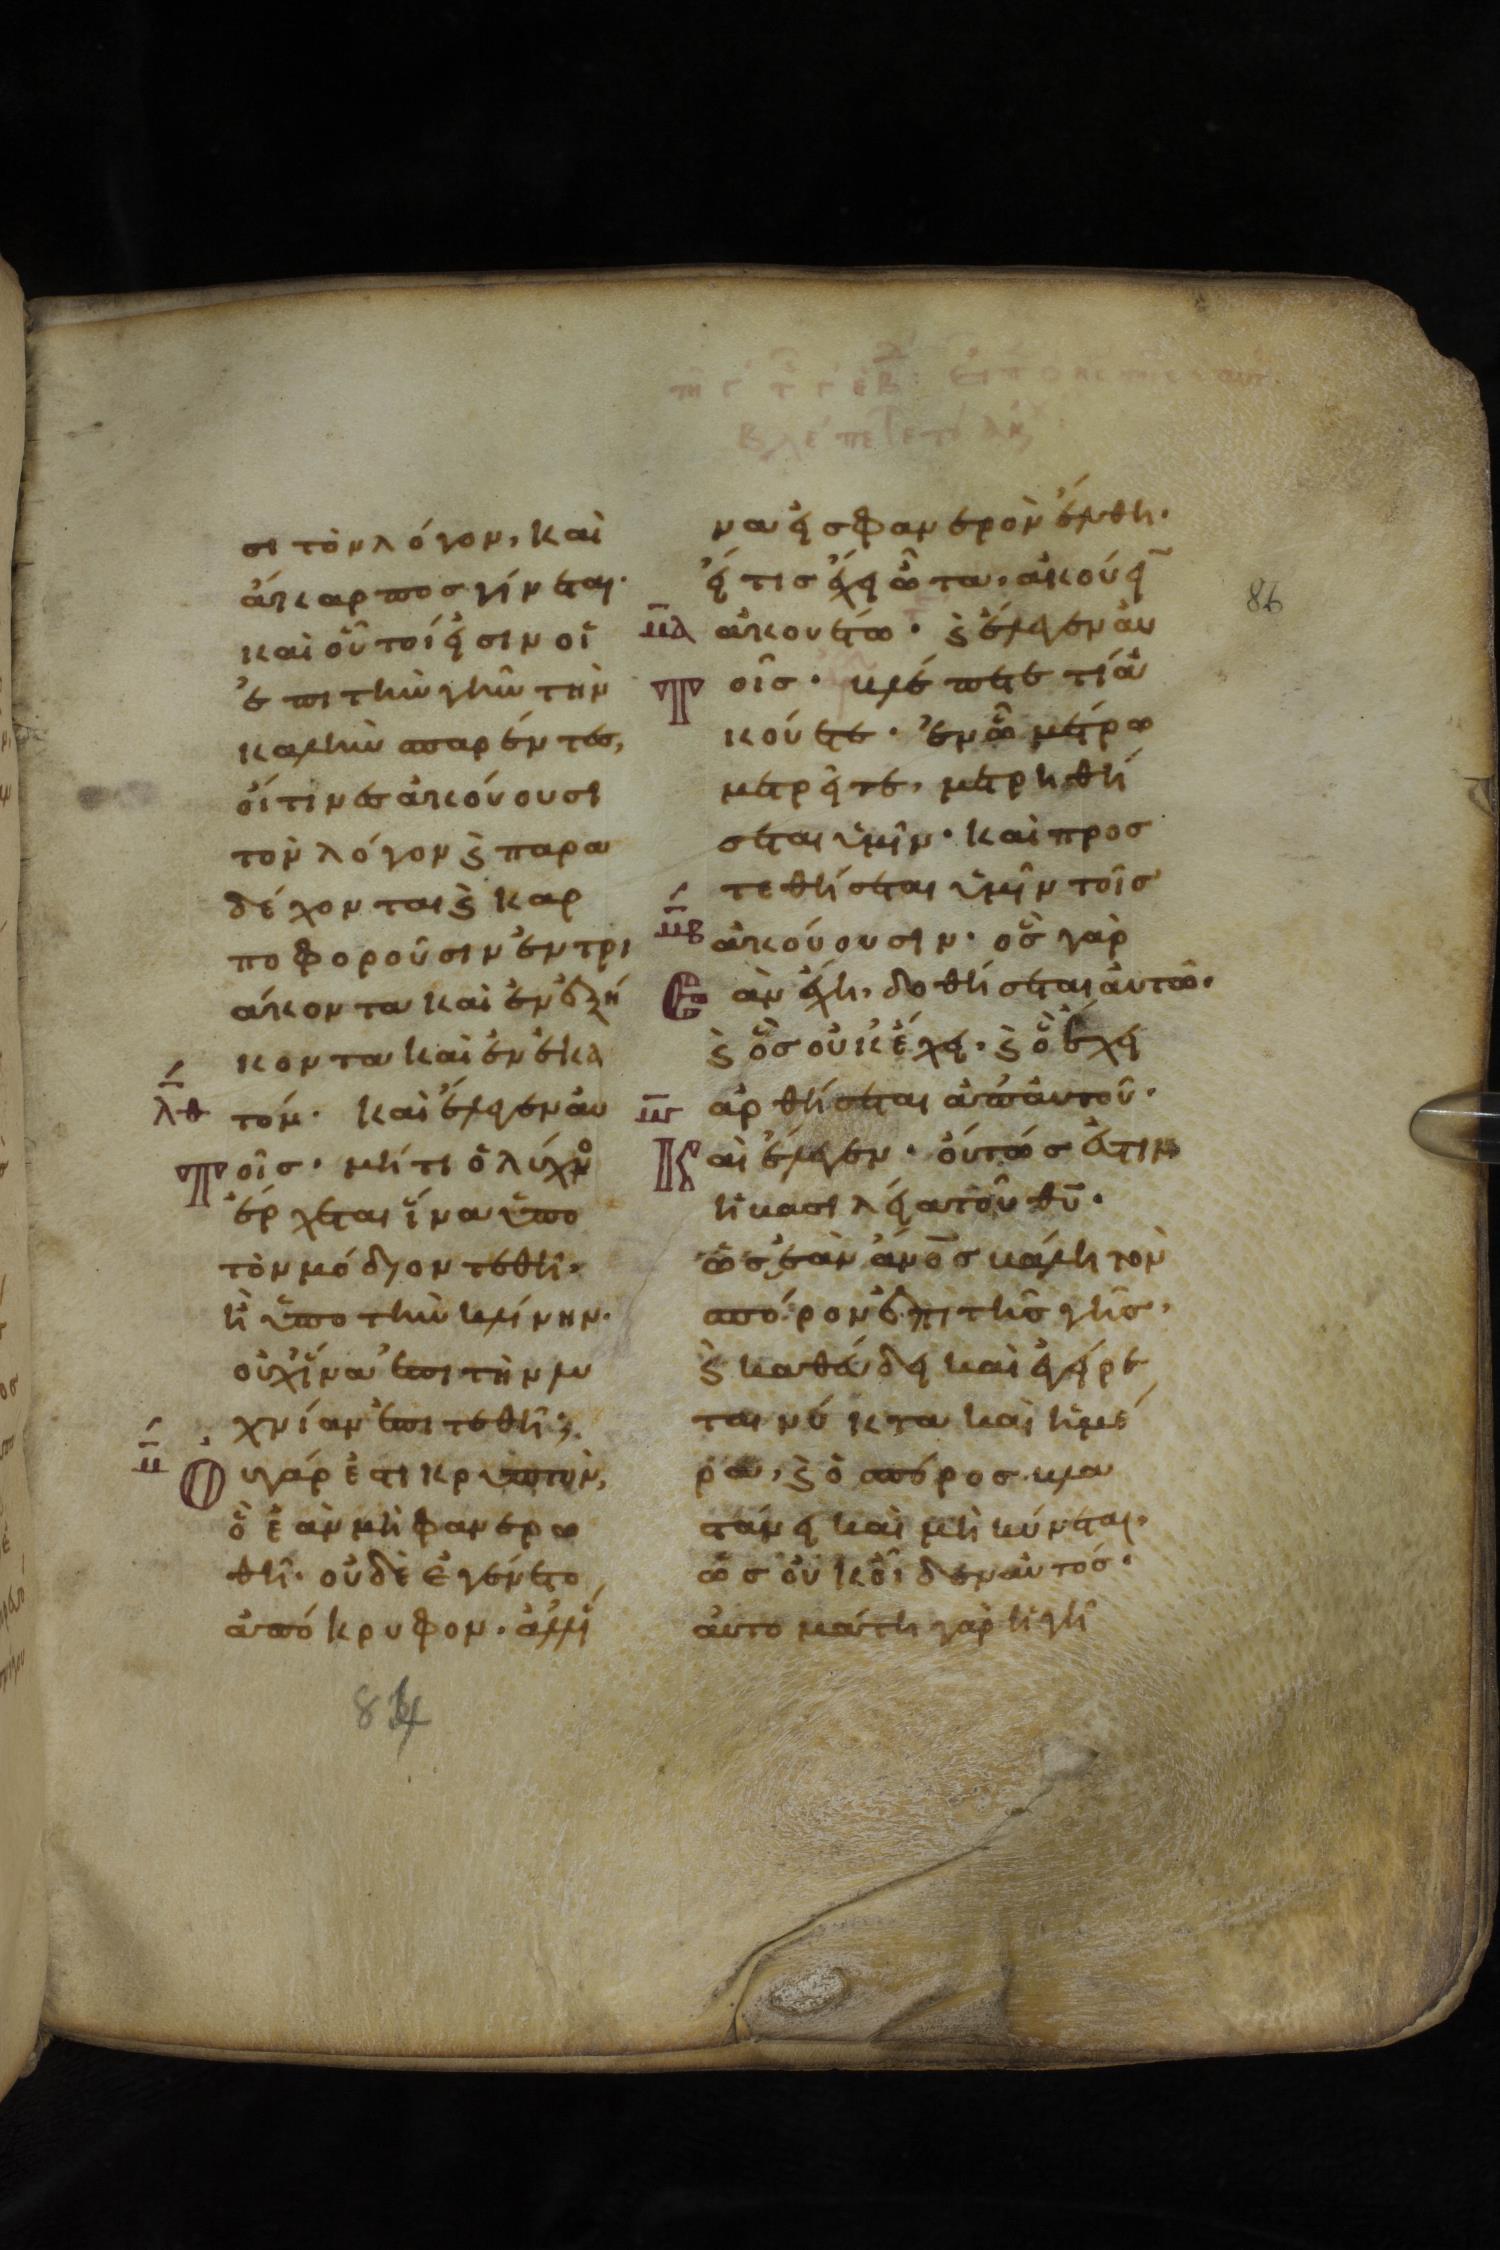 σι τὸν λόγον, καὶ
ἄκαρπος γίνεται·
καὶ οὗτοί εἰσιν οἱ
ἐπι τὴν γῆν τὴν
καλὴν σπαρέντες,
οἵτινες ἀκούουσι
τὸν λόγον ϗ παρα
δέχονται ϗ καρ
ποφοροῦσιν ἐν τρι
άκοντα καὶ ἐν ἑξή
κοντα καὶ ἐν ἑκα
λθ τόν· καὶ ἔλεγεν αυ
Τοῖς· μήτι ὁ λύχνο
ἔρχεται ἵνα ὑπο
τὸν μόδιον τεθῆ·
ἢ ὑπο τὴν κλίνην·
οὐχ ἵνα ἐπι τὴν λυ
χνίαν ἐπιτεθῆ;
μ Οὐ γάρ ἐστι κρυπτὸν,
ὃ ἐὰν μὴ φανερω
θῆ· οὐδὲ ἐγένετο
ἀπόκρυφον· ἀλλ' ἵ
84
βλέπετε τί ἀκ
να εἰς φανερὸν ἔλθη·
εἴ τις ἔχει ὦτα, ἀκούει
μα ἀκουέτω· ϗ ἔλεγεν αυ
Τοῖς· βλέπετε τί ἀ
κούετε· ἐν ὧ μέτρω
μετρεῖτε, μετρηθή
σεται ὑμῖν· καὶ προσ
τεθήσεται ὑμῖν τοῖς
μβ ἀκούουσιν· ὃς γὰρ
Ἐὰν ἔχη, δοθήσεται αὐτῶ·
ϗ ὃς οὐκ ἔχει, ϗ ὃ ἔχει
μγ ἀρθήσεται ἀπ αὐτοῦ·
Καὶ ἔλεγεν· οὕτως ἐστιν
ἡ βασιλεία τοῦ θυ·
ὡς ἐὰν ἀνος βάλη τὸν
σπόρον ἐπι τῆς γῆς,
ϗ καθεύδει καὶ ἐγείρε
ται νύκτα καὶ ἡμέ
ραν, ϗ ὁ σπόρος βλα
στάνει καὶ μηκύνεται,
ὡς οὐκ οἶδεν αὐτός·
αὐτομάτη γὰρ ἡ γῆ
86